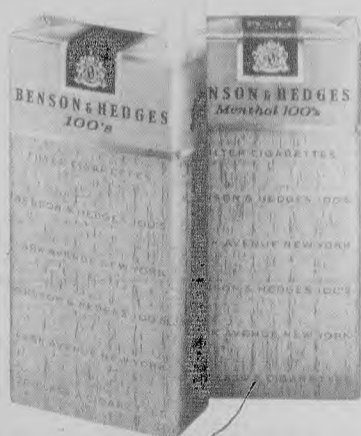 BENSON & HEDGES
100's
FILTER CIGARETTES
BENSON & HEDGES 100'S
PARK AVENUE NEW YORK
BENSON & HEDGES 100'S
PARK AVENUE NEW YORK
CIGARETTES
NSON & HEDGES
Menthol 100's
LTER CIGARETTES
SON & HEDGES 100'S
K AVENUE NEW YORK
SON & HEDGES 100'S
K AVENUE NEW YORK
CIGARETTES